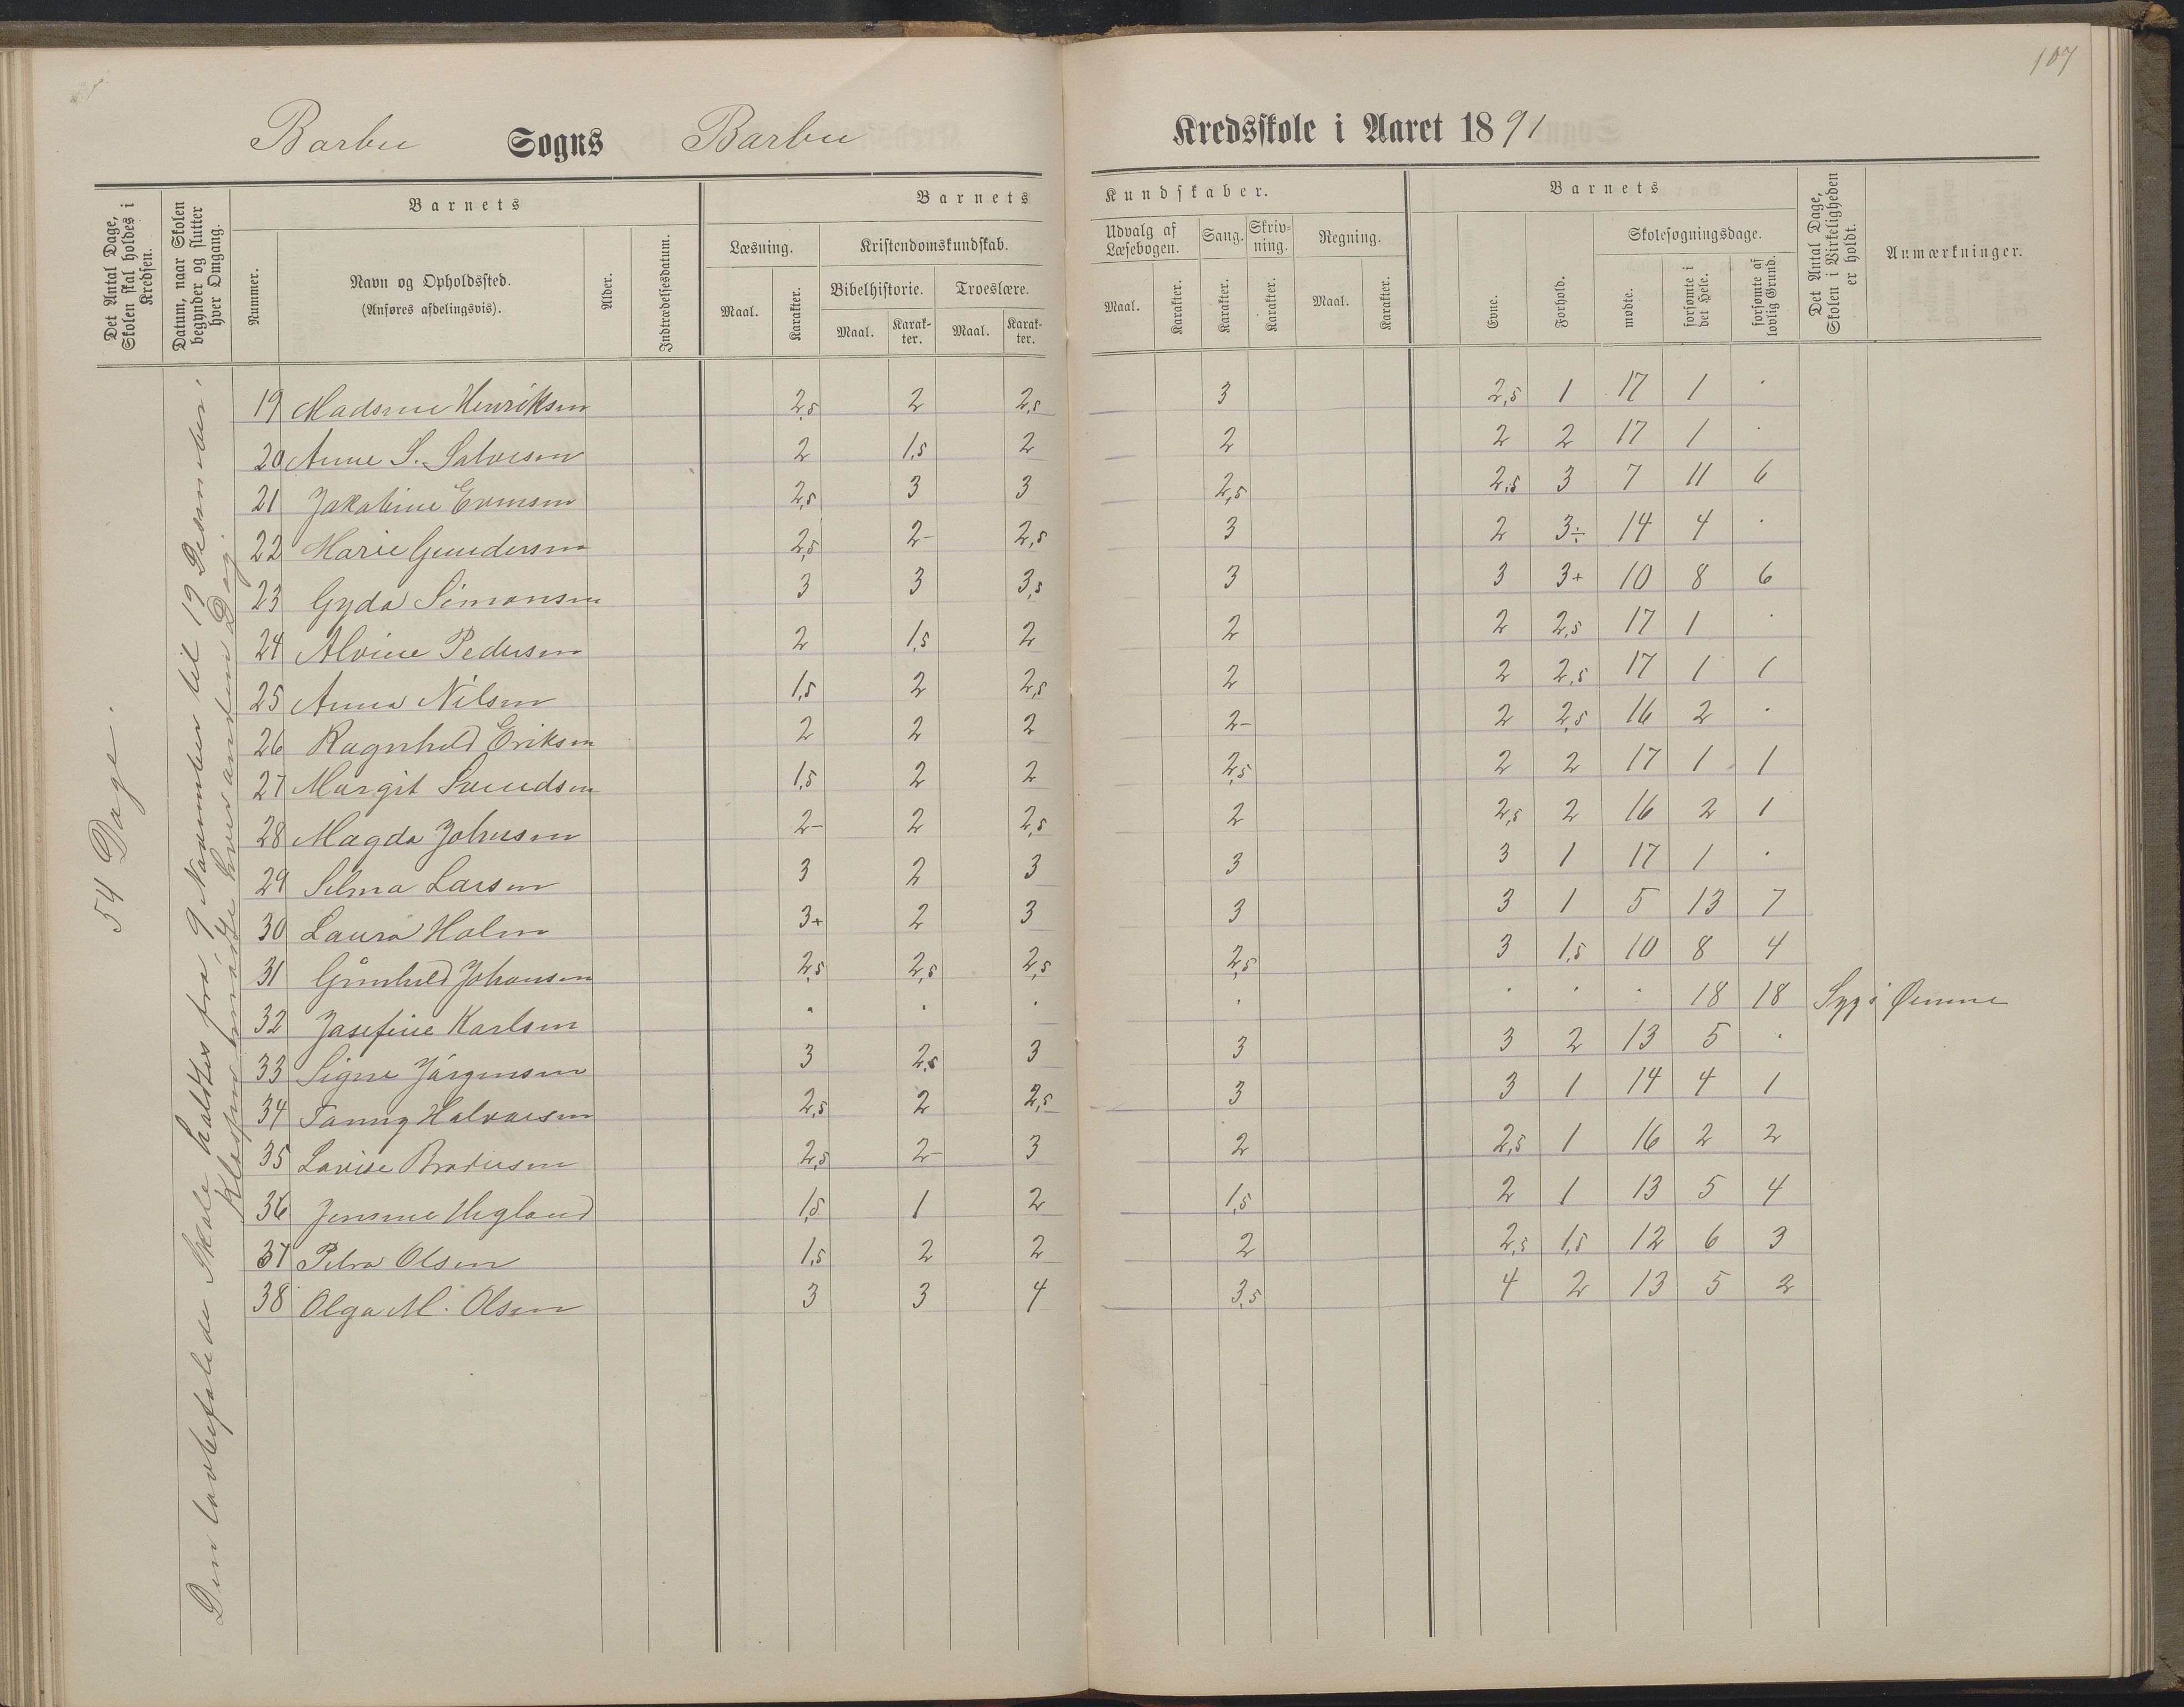 107
Barbu Sogns Barbu Kredsskole i Aaret 1891
Det Antal Dage, Skolen skal holdes i Kredsen.
Datum, naar Skolen begynder og slutter hver Omgang.
Barnets
Nummer.
Navn og Opholdssted.
(Anføres afdelingsvis).
Alder.
Indtrædelsesdatum.
Barnets Kundskaber.
Læsning. Kristendomskundskab. Udvalg af Læsebogen. Sang. Skrivning. Regning.
Bibelhistorie. Troeslære.
Maal. Karakter. Maal. Karakter. Maal. Karakter. Maal. Karakter. Karakter. Karakter. Maal. Karakter.
Barnets
Evne. Forhold. Skolesøgningsdage.
mødte. forsømte i det Hele. forsømte af lovlig Grund.
Det Antal Dage, Skolen i Virkeligheden er holdt.
Anmærkninger.
54 Dage.
Den lovbefalede Skole holdtes fra 9 November til 19 Desember.
Klassen mødte hver anden Dag.
19 Madsine Henriksen 2,5 2 2,5 3 2,5 1 17 1 .
20 Anne S. Salvesen 2 1,5 2 2 2 2 17 1 .
21 Jakobine Evensen 2,5 3 3 2,5 2,5 3 7 11 6
22 Marie Gundersen 2,5 2- 2,5 3 2 3÷ 14 4 .
23 Gyda Simonsen 3 3 3,5 3 3 3+ 10 8 6
24 Alvine Pedersen 2 1,5 2 2 2 2,5 17 1 .
25 Anna Nilsen 1,5 2 2,5 2 2 2,5 17 1 1
26 Ragnhild Eriksen 2 2 2 2- 2 2,5 16 2 .
27 Margit Svendsen 1,5 2 2 2,5 2 2 17 1 1
28 Magda Johnsen 2- 2 2,5 2 2,5 2 16 2 1
29 Selma Larsen 3 2 3 3 3 1 17 1 .
30 Laura Holm 3+ 2 3 3 3 1 5 13 7
31 Gunhild Johansen 2,5 2,5 2,5 2,5 3 1,5 10 8 4
32 Josefine Karlsen . . . . . . . 18 18 Syg i Øinene
33 Signe Jörgensen 3 2,5 3 3 3 2 13 5 .
34 Fanny Halvorsen 2,5 2 2,5 3 3 1 14 4 1
35 Lovise Brodersen 2,5 2- 3 2 2,5 1 16 2 2
36 Jensine Ugland 1,5 1 2 1,5 2 1 13 5 4
37 Petra Olsen 1,5 2 2 2 2,5 1,5 12 6 3
38 Olga M. Olsen 3 3 4 3,5 4 2 13 5 2